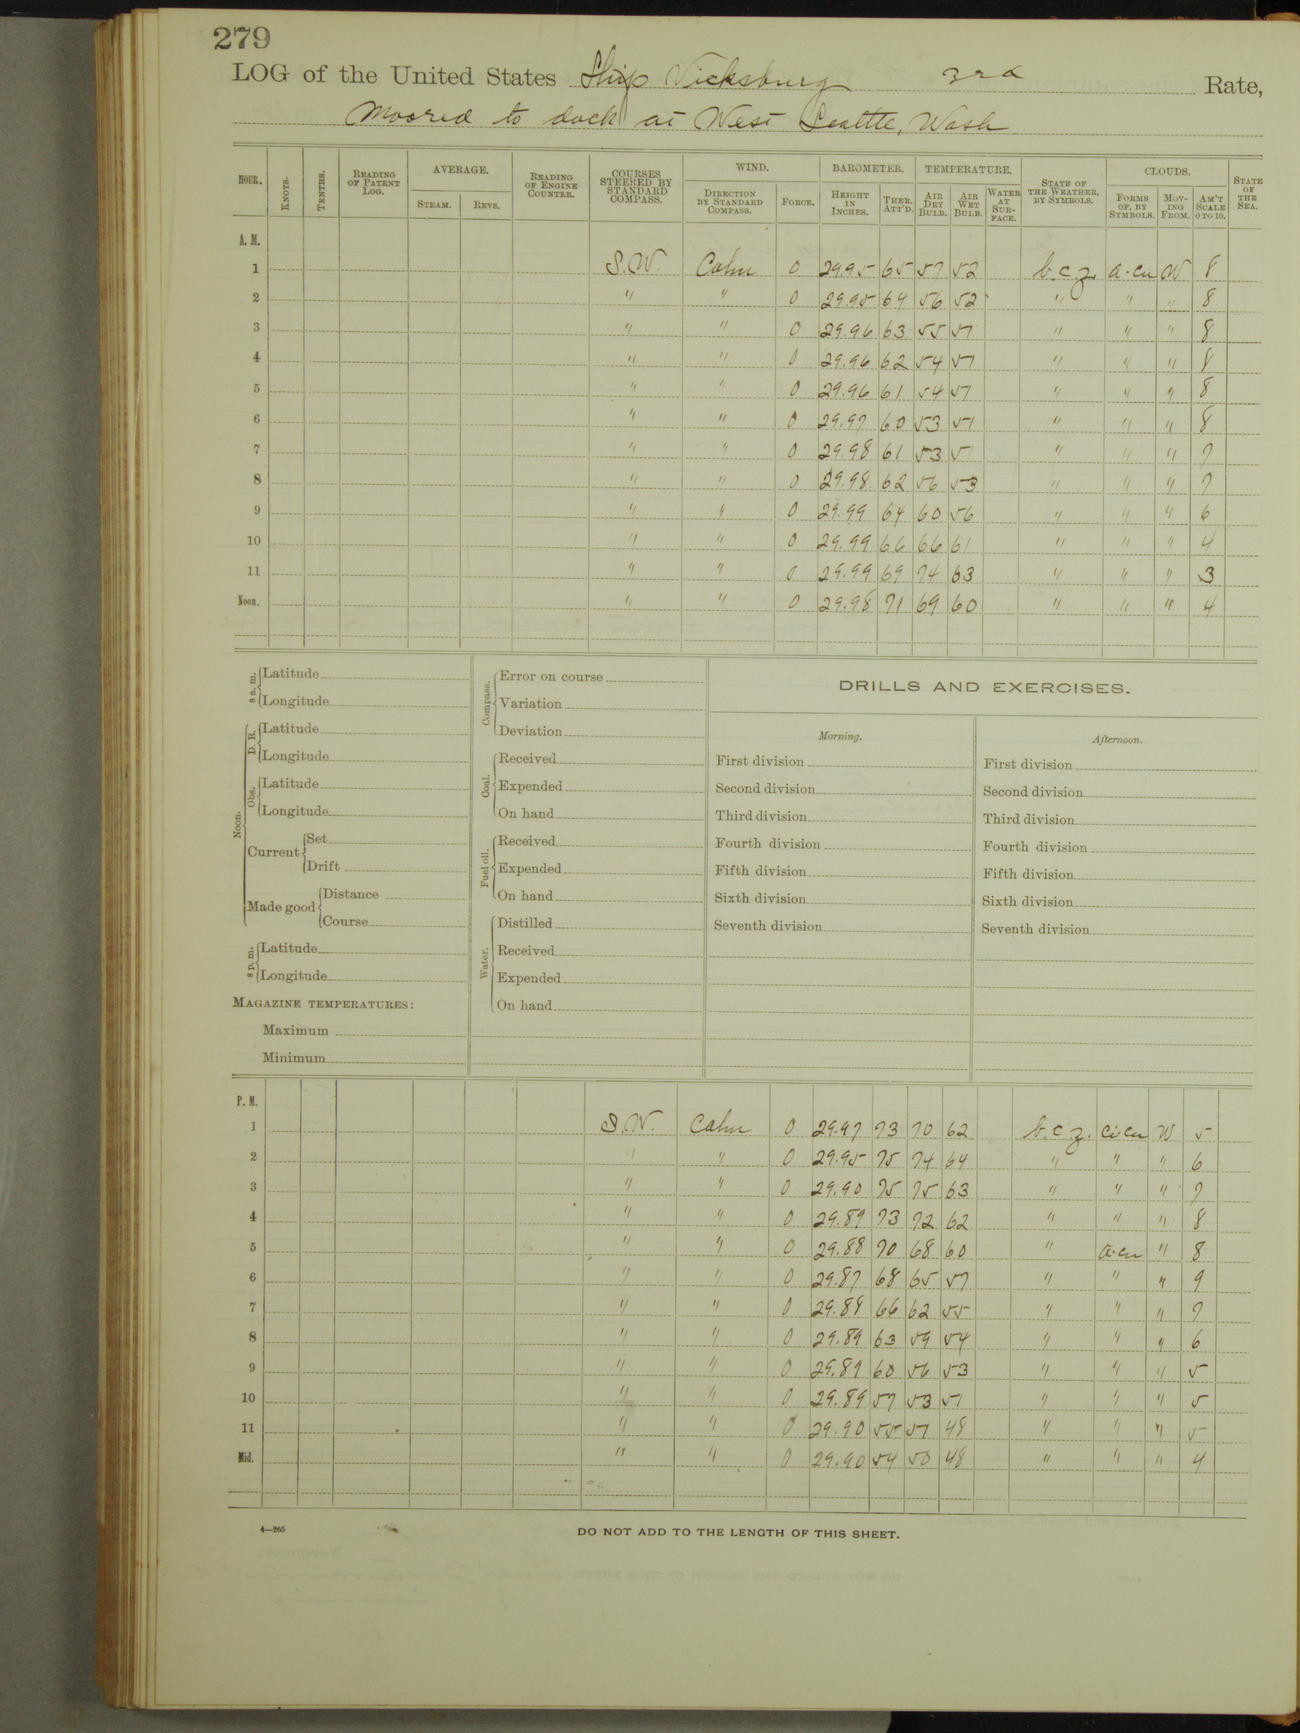 279
LOG of the United States Ship Vicksburg 3rd Rate,
Moored to dock at West Seattle, Wash
HOUR. KNOTS. TENTHS. READING OF PATENT LOG. AVERAGE. STEAM. REVS. READING OF ENGINE COUNTER. COURSES STEERED BY STANDARD COMPASS. WIND. DIRECTION BY STANDARD COMPASS. FORCE. BAROMETER. HEIGHT IN INCHES. THER. ATT'D. TEMPERATURE. AIR DRY BULB. AIR WET BULB. WATER AT SURFACE. STATE OF THE WEATHER, BY SYMBOLS. CLOUDS. FORMS OF, BY SYMBOLS. MOVING FROM. AM'T SCALE 0 TO 10. STATE OF THE SEA.
A. M.
1 S.W. Calm 0 29.95 65 57 52 b.c.z. a-cu W 8
2 " " 0 29.95 64 56 52 " " " 8
3 " " 0 29.96 63 55 51 " " " 8
4 " " 0 29.96 62 54 51 " " " 8
5 " " 0 29.96 61 54 51 " " " 8
6 " " 0 29.97 60 53 51 " " " 8
7 " " 0 29.98 61 53 51 " " " 7
8 " " 0 29.98 62 56 53 " " " 7
9 " " 0 29.99 64 60 56 " " " 6
10 " " 0 29.99 66 66 61 " " " 4
11 " " 0 29.99 69 74 63 " " " 3
Noon. " " 0 29.98 71 69 60 " " " 4
8 a. m. Latitude
Longitude
Noon. D. R. Latitude
Longitude
Obs. Latitude
Longitude
Current Set
Drift
Made good Distance
Course
8 p. m. Latitude
Longitude
MAGAZINE TEMPERATURES:
Maximum
Minimum
Compass. Error on course
Variation
Deviation
Coal. Received
Expended
On hand
Fuel oil. Received
Expended
On hand
Water. Distilled
Received
Expended
On hand
DRILLS AND EXERCISES.
Morning.
First division
Second division
Third division
Fourth division
Fifth division
Sixth division
Seventh division
Afternoon.
First division
Second division
Third division
Fourth division
Fifth division
Sixth division
Seventh division
P. M.
1 S.W. Calm 0 29.97 73 70 62 b.c.z. ci-cu W 5
2 " " 0 29.95 75 74 64 " " " 6
3 " " 0 29.90 75 75 63 " " " 7
4 " " 0 29.89 73 72 62 " " " 8
5 " " 0 29.88 70 68 60 " a-cu " 8
6 " " 0 29.87 68 65 57 " " " 9
7 " " 0 29.88 66 62 55 " " " 7
8 " " 0 29.89 63 59 54 " " " 6
9 " " 0 29.89 60 56 53 " " " 5
10 " " 0 29.89 57 53 51 " " " 5
11 " " 0 29.90 55 51 48 " " " 5
Mid. " " 0 29.90 54 50 48 " " " 4
4—265
DO NOT ADD TO THE LENGTH OF THIS SHEET.